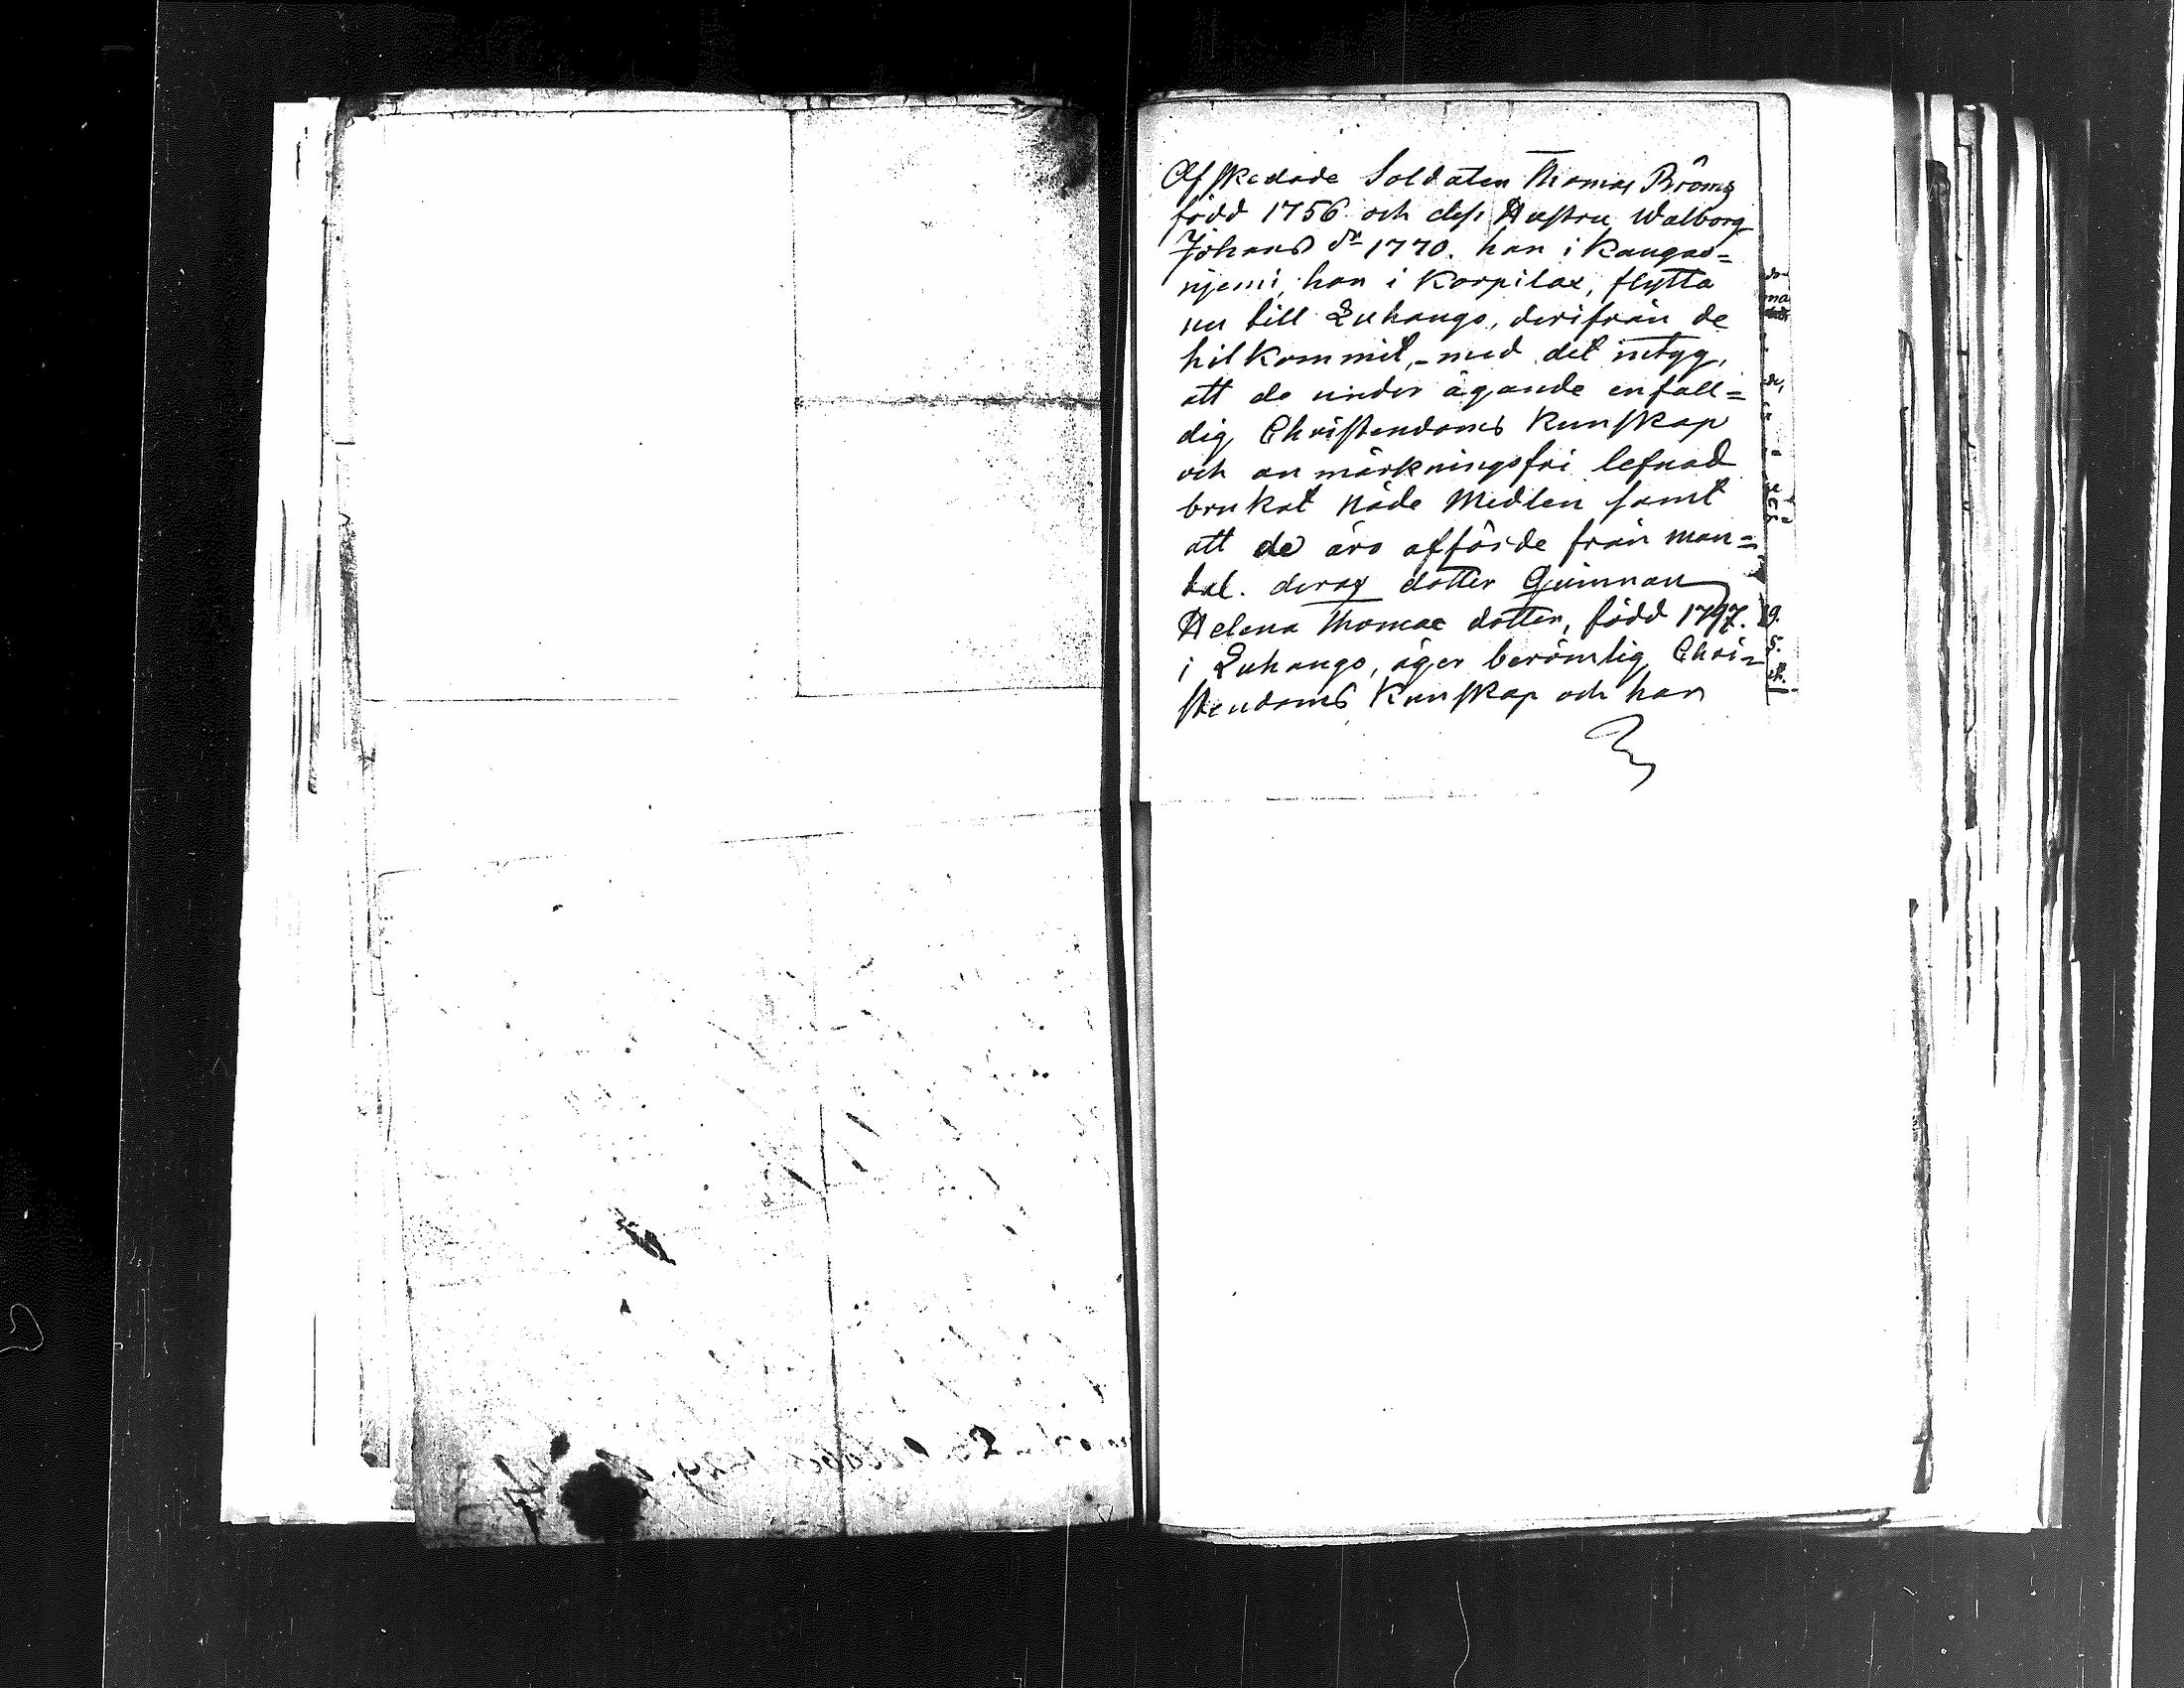 Afskedade Soldaten Thomas Bröms
född 1756 och dess Hustru Walborg
Johans dr 1770. han i Kangas=
njemi, hon i Korpilax, flytta
nu till Luhango, derifrån de
hitkommit, med det intyg,
att de under ägande enfall=
dig Christendoms Kunskap
och anmärkningsfri lefnad
brukat Nåde Medlen samt
att de äro afförde från man=
tal. deras dotter Qvinnan
Helena Thomae dotter, född 1797.
i Luhango, äger berömlig Chri=
stendoms Kunskap och har